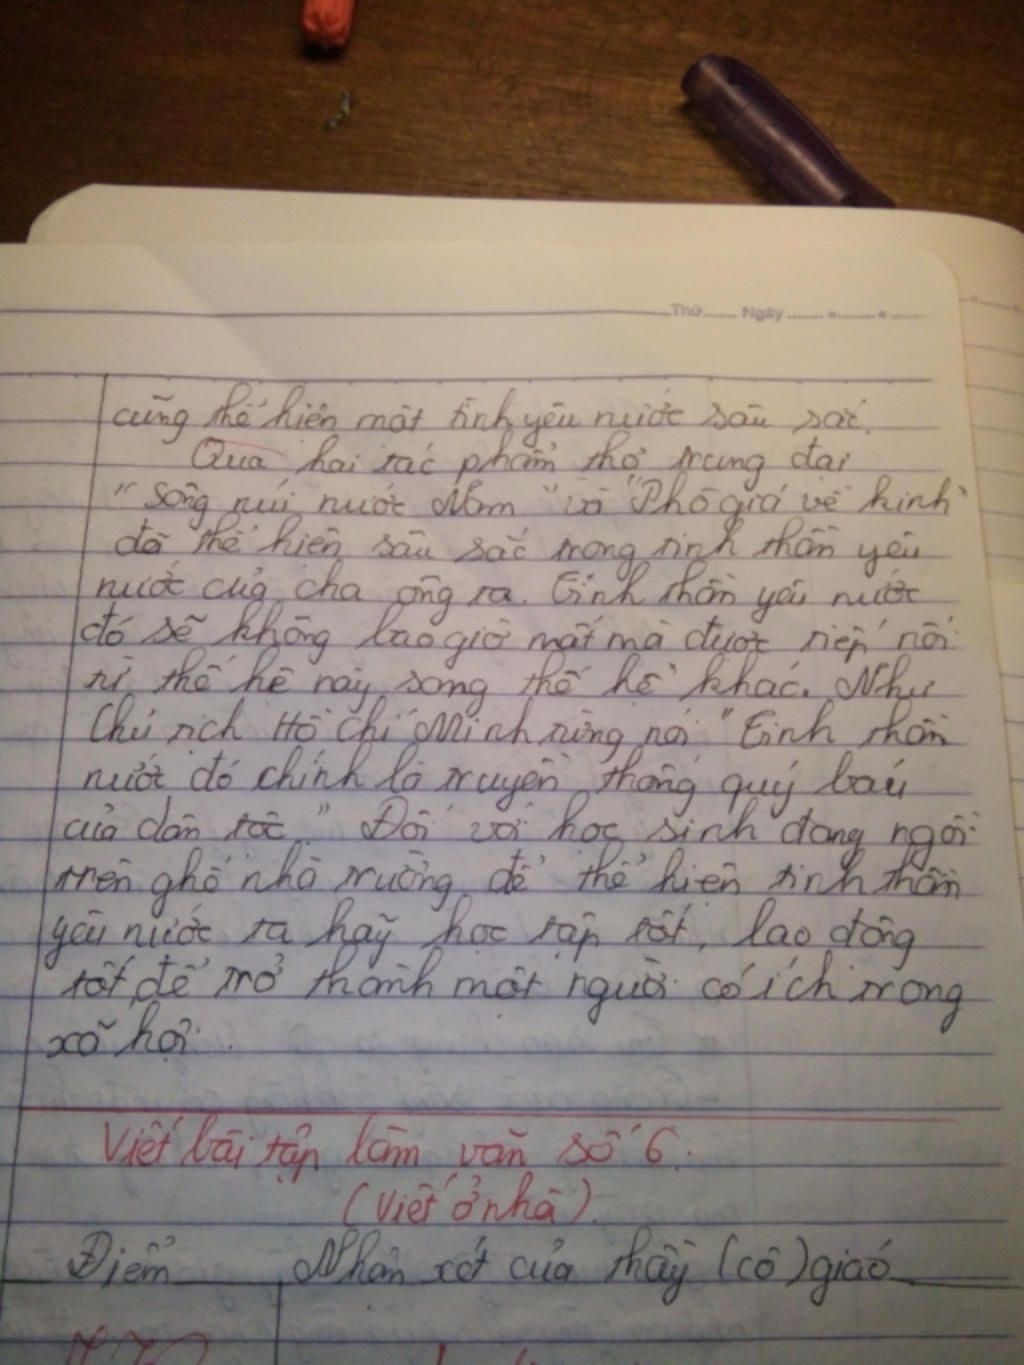 Thứ...... Ngày.......•.......•......
cũng thể hiện một tình yêu nước sâu sắc.
Qua hai tác phẩm thơ trung đại
"Sông núi nước Nam" và "Phò giá về kinh"
đã thể hiện sâu sắc trong tinh thần yêu
nước của cha ông ta. Tinh thần yêu nước
đó sẽ không bao giờ mất mà được tiếp nối
từ thế hệ này sang thế hệ khác. Như
Chủ tịch Hồ Chí Minh từng nói "Tinh thần
nước đó chính là truyền thống quý báu
của dân tộc." Đối với học sinh đang ngồi
trên ghế nhà trường, để thể hiện tinh thần
yêu nước ta hãy học tập tốt, lao động
tốt, để trở thành một người có ích trong
xã hội.
Viết bài tập làm văn số 6.
(Viết ở nhà).
Điểm Nhận xét của thầy (cô) giáo